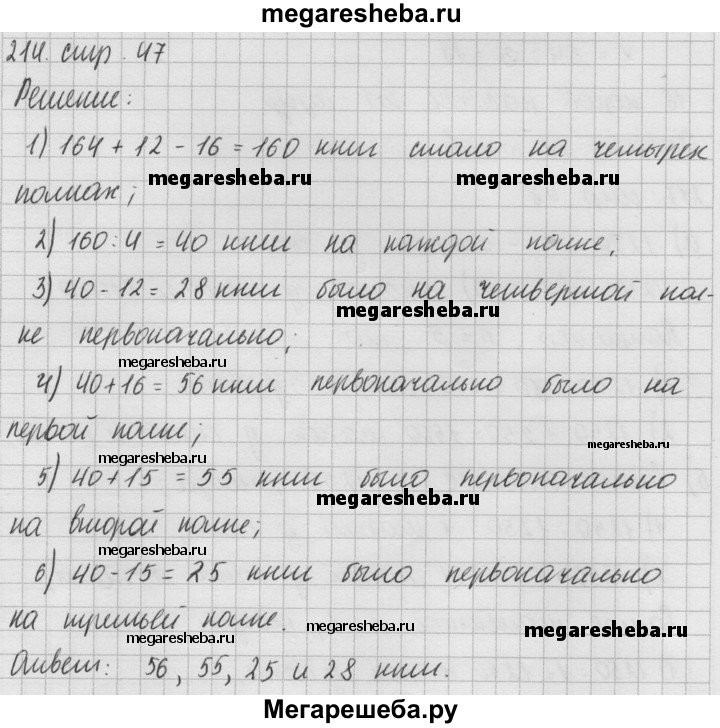 megaresheba.ru
214. стр. 47
Решение:
1) 164 + 12 - 16 = 160 книг стало на четырёх
megaresheba.ru megaresheba.ru
полках;
2) 160 : 4 = 40 книг на каждой полке;
3) 40 - 12 = 28 книг было на четвертой пол-
megaresheba.ru
ке первоначально;
megaresheba.ru
4) 40 + 16 = 56 книг первоначально было на
первой полке;
megaresheba.ru
megaresheba.ru
5) 40 + 15 = 55 книг было первоначально
megaresheba.ru
на второй полке;
megaresheba.ru
6) 40 - 15 = 25 книг было первоначально
на третьей полке.
megaresheba.ru megaresheba.ru megaresheba.ru
Ответ: 56, 55, 25 и 28 книг.
Мегарешеба.ру